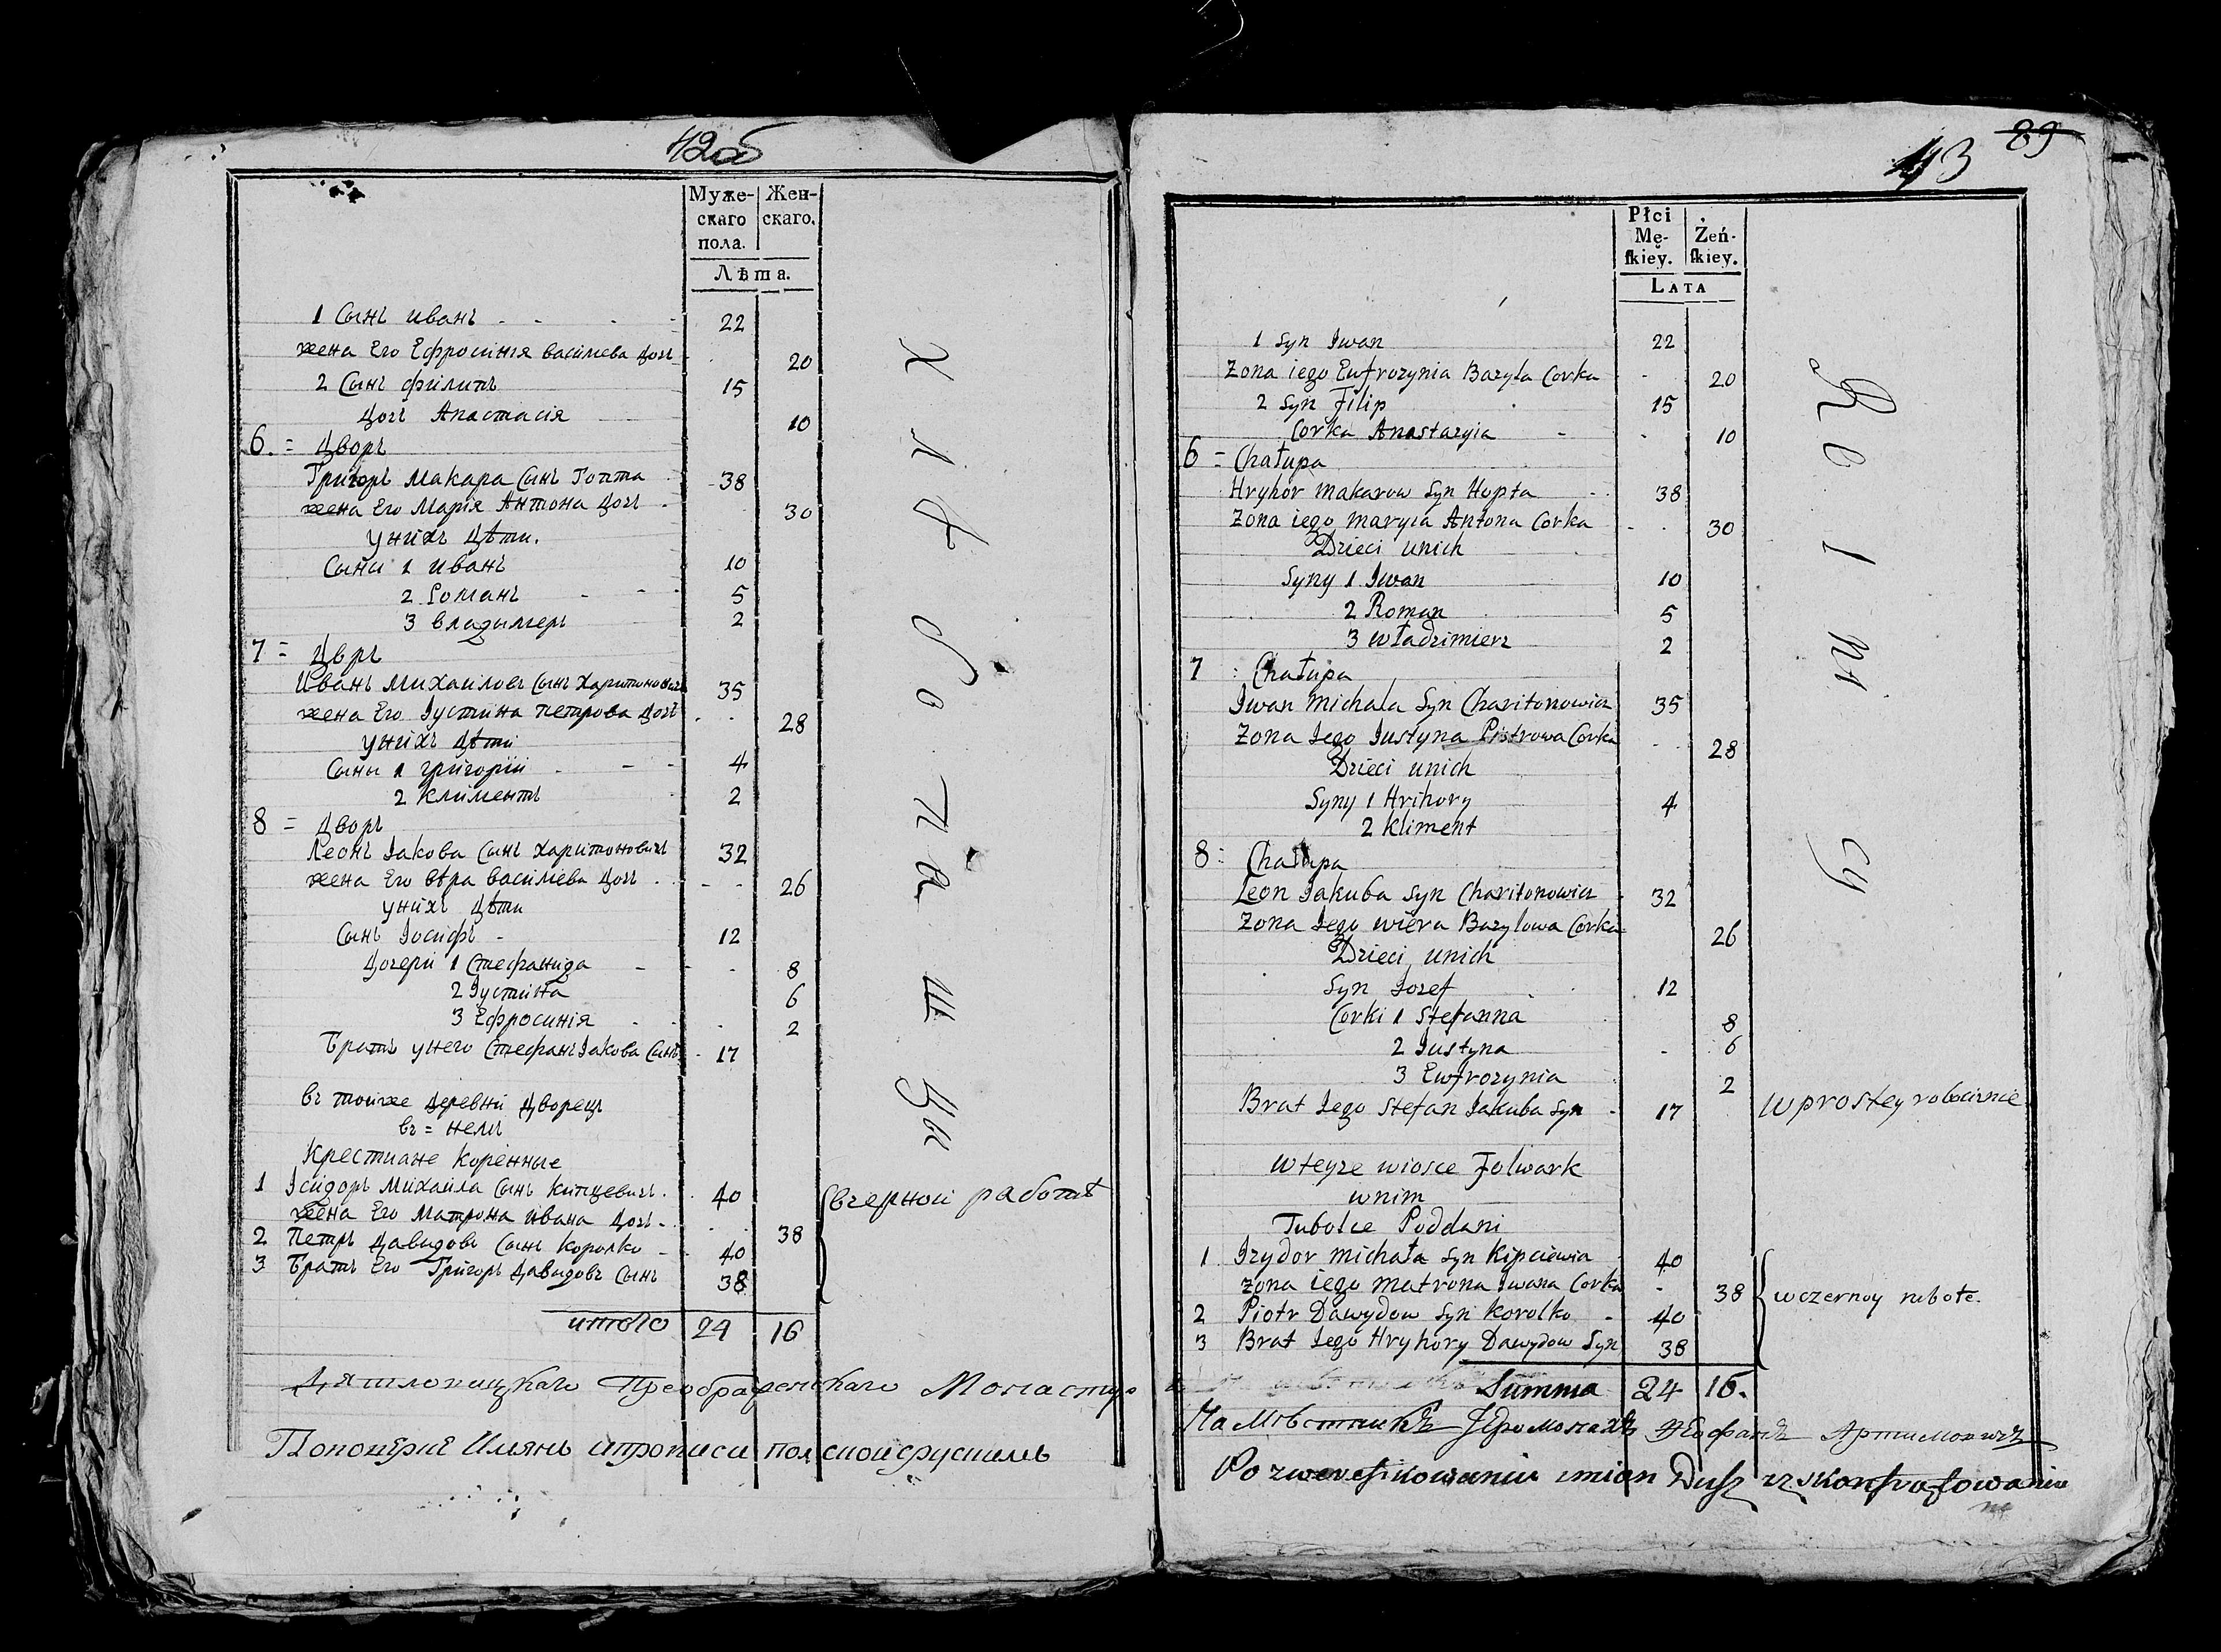 42об
Муже-
скаго
пола.
Жен-
скаго.
Лѣта.
1 Сынъ иванъ 22
жена Его Ефросинія василіева дочь 20
2 Сынъ филипъ 15
дочь Анастасія 10
6. = Дворъ
Григоръ Макара Сынъ Гопта 38
жена Его Марія Антона дочь 30
унихъ дѣти.
Сыны 1 иванъ 10
2 Романъ 5
3 владимеръ 2
7 = Дворъ
Иванъ Михаиловъ Сынъ Харитоновичъ 35
жена Его Іустина петрова дочь 28
унихъ дѣти
Сыны 1 григорій 4
2 климентъ 2
8 = Дворъ
Леонъ Іакова Сынъ харитоновичъ 32
жена Его вѣра василіева дочь 26
унихъ дѣти
Сынъ Іосифъ 12
дочери 1 Стефанида 8
2 Іустина 6
3 Ефросинія 2
Братъ унего Стефанъ Іакова Сынъ 17
въ тойже деревни дворецъ
въ = немъ
Крестиане коренные
1 Ісидоръ Михаила Сынъ Кипцевичъ 40
жена Его Матрона ивана дочь 38
2 Петръ давидовъ Сынъ королко 40
3 Братъ Его Григоръ давидовъ Сынъ 38
итого 24 16
хлѣбопашцы
вчерной работѣ
Преображенскаго Монастыр
43
89
Płci
Mę-
skiey.
Żeń-
skiey.
LATA
1 Syn Iwan 22
Zona iego Eufrozynia Bazyla Corka 20
2 Syn Filip 15
Corka Anastazyia 10
6 = Chałupa
Hryhor Makarow Syn Hopta 38
Zona iego Maryia Antona Corka 30
Dzieci unich
Syny 1 Iwan 10
2 Roman 5
3 Władzimierz 2
7 : Chałupa
Iwan Michala Syn Charitonowicz 35
Zona Iego Iustyna Piotrowa Corka 28
Dzieci unich
Syny 1 Hrihory 4
2 Kliment
8 : Chałupa
Leon Iakuba Syn Charitonowicz 32
Zona Iego wiera Bazylowa Corka 26
Dzieci unich
Syn Iozef 12
Corki 1 Stefanna 8
2 Iustyna 6
3 Eufrozynia 2
Brat Iego Stefan Iakuba Syn 17
wteyze wiosce Folwark
wnim
Tubolce Poddani
1 Izydor Michała Syn Kipciewicz 40
Zona iego Matrona Iwana Corka 38
2 Piotr Dawydow Syn Korolko 40
3 Brat Iego Hryhory Dawydow Syn 38
Summa 24 16.
Rolnicy
wprostey robociznie
wczernoy robote.
Намѣстникъ Іеромонахъ
Po zweryfikowaniu imion Dusz